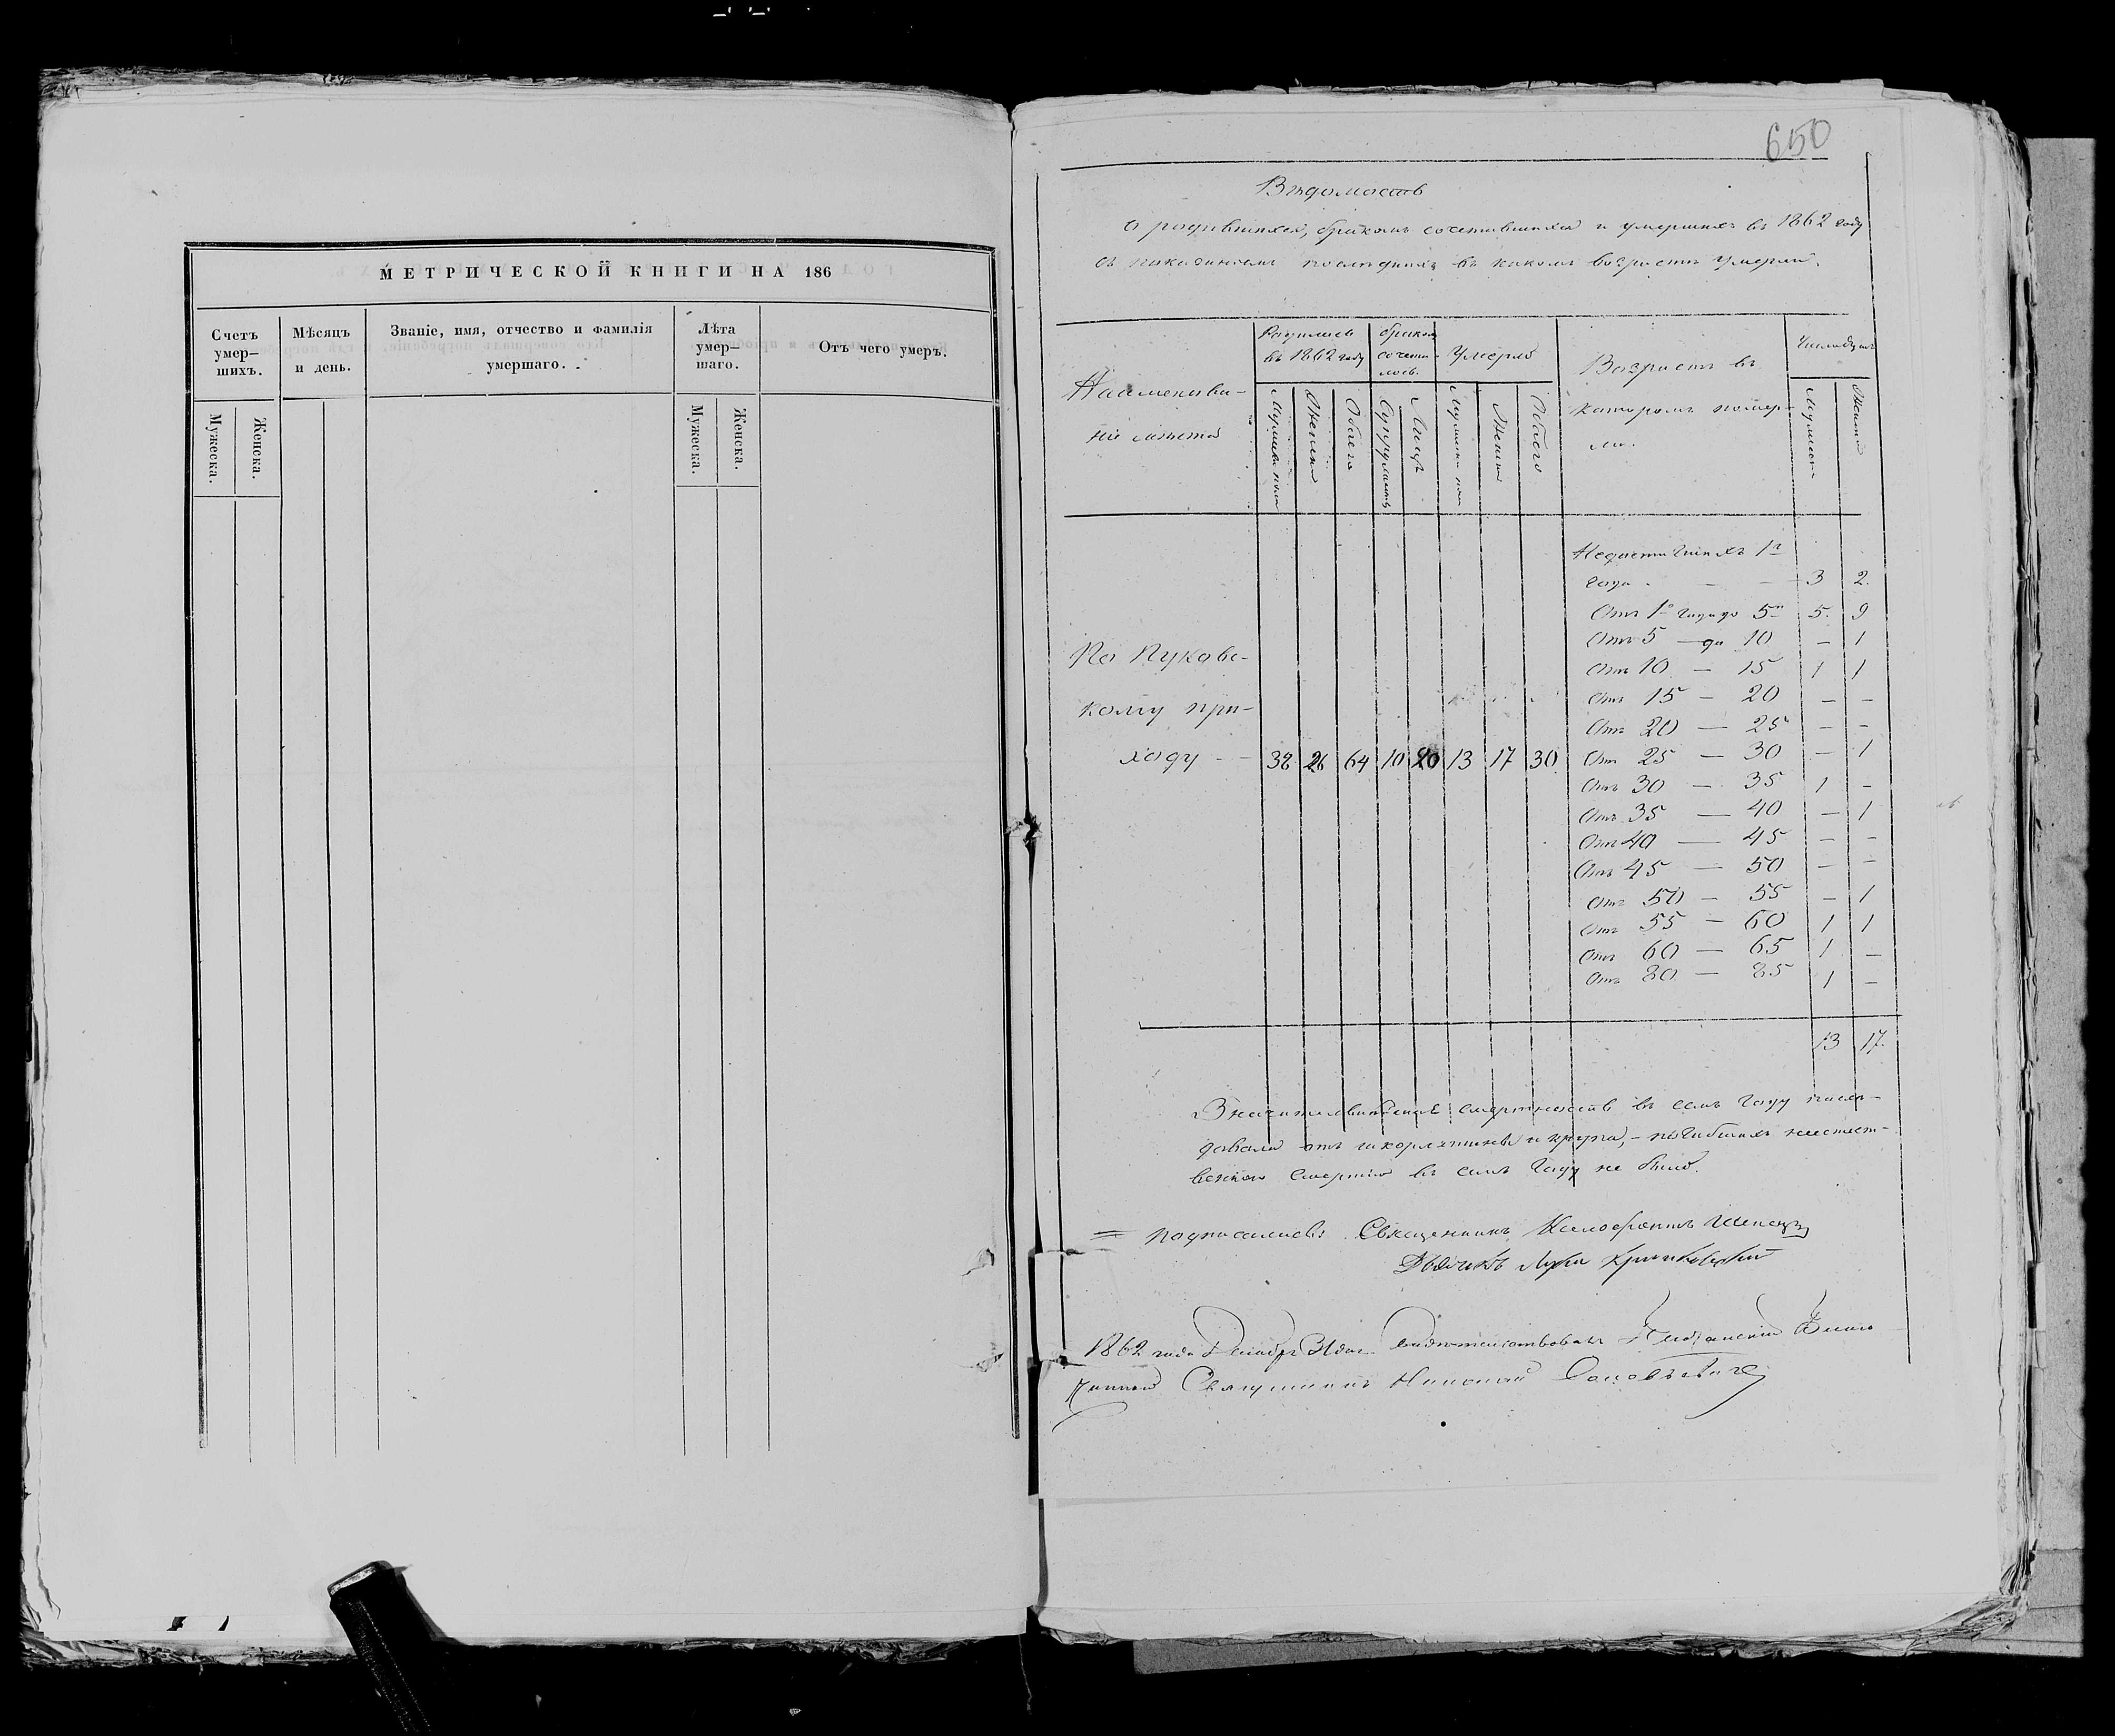 МЕТРИЧЕСКОЙ КНИГИ НА 186
Счетъ умер— шихъ.
Мѣсяцъ и день.
Званіе, имя, отчество и фамилія умершаго.
Лѣта умер— шаго.
Отъ чего умеръ.
Мужеска.
Женска.
Мужеска.
Женска.
650
Вѣдомость
о родившихся, бракомъ сочетавшихся и умершихъ въ 1862 году
съ показаніемъ послѣднихъ въ какомъ возрастѣ умерли.
Наименова-
ніе мѣста
Родилось въ 1862 году
бракомъ сочета- лось.
Умерло
Возрастъ въ
которомъ помер-
ли.
Число душъ
Мужеска пола
Женска
Обоего
Супружествъ
Лицъ
Мужеска пола
Женска
Обоего
Мужеска
Женска
Недостигшихъ 1го
года — — 3 2.
Отъ 1го года до 5ти 5. 9
Отъ 5 — до 10 — 1
Отъ 10 — 15 1 1
Отъ 15 — 20 — —
Отъ 20 — 25 — —
Отъ 25 — 30 — 1
Отъ 30 — 35 1 —
Отъ 35 — 40 — 1
Отъ 40 — 45 — —
Отъ 45 — 50 — —
Отъ 50 — 55 — 1
Отъ 55 — 60 1 1
Отъ 60 — 65 1 —
Отъ 80 — 85 1 —
По Пуковс-
кому при-
ходу - — 38 26 64 10 20 13 17 30
13 17.
Значительнѣйшая смертность въ семъ году послѣ-
довала отъ и крупа, — погибшихъ неестест-
венною смертію въ семъ году не было.
= подписались: Священникъ
Дьячокъ Лука
1862 года Декабр. 31 дня свидѣтельствовалъ
Священникъ Николай